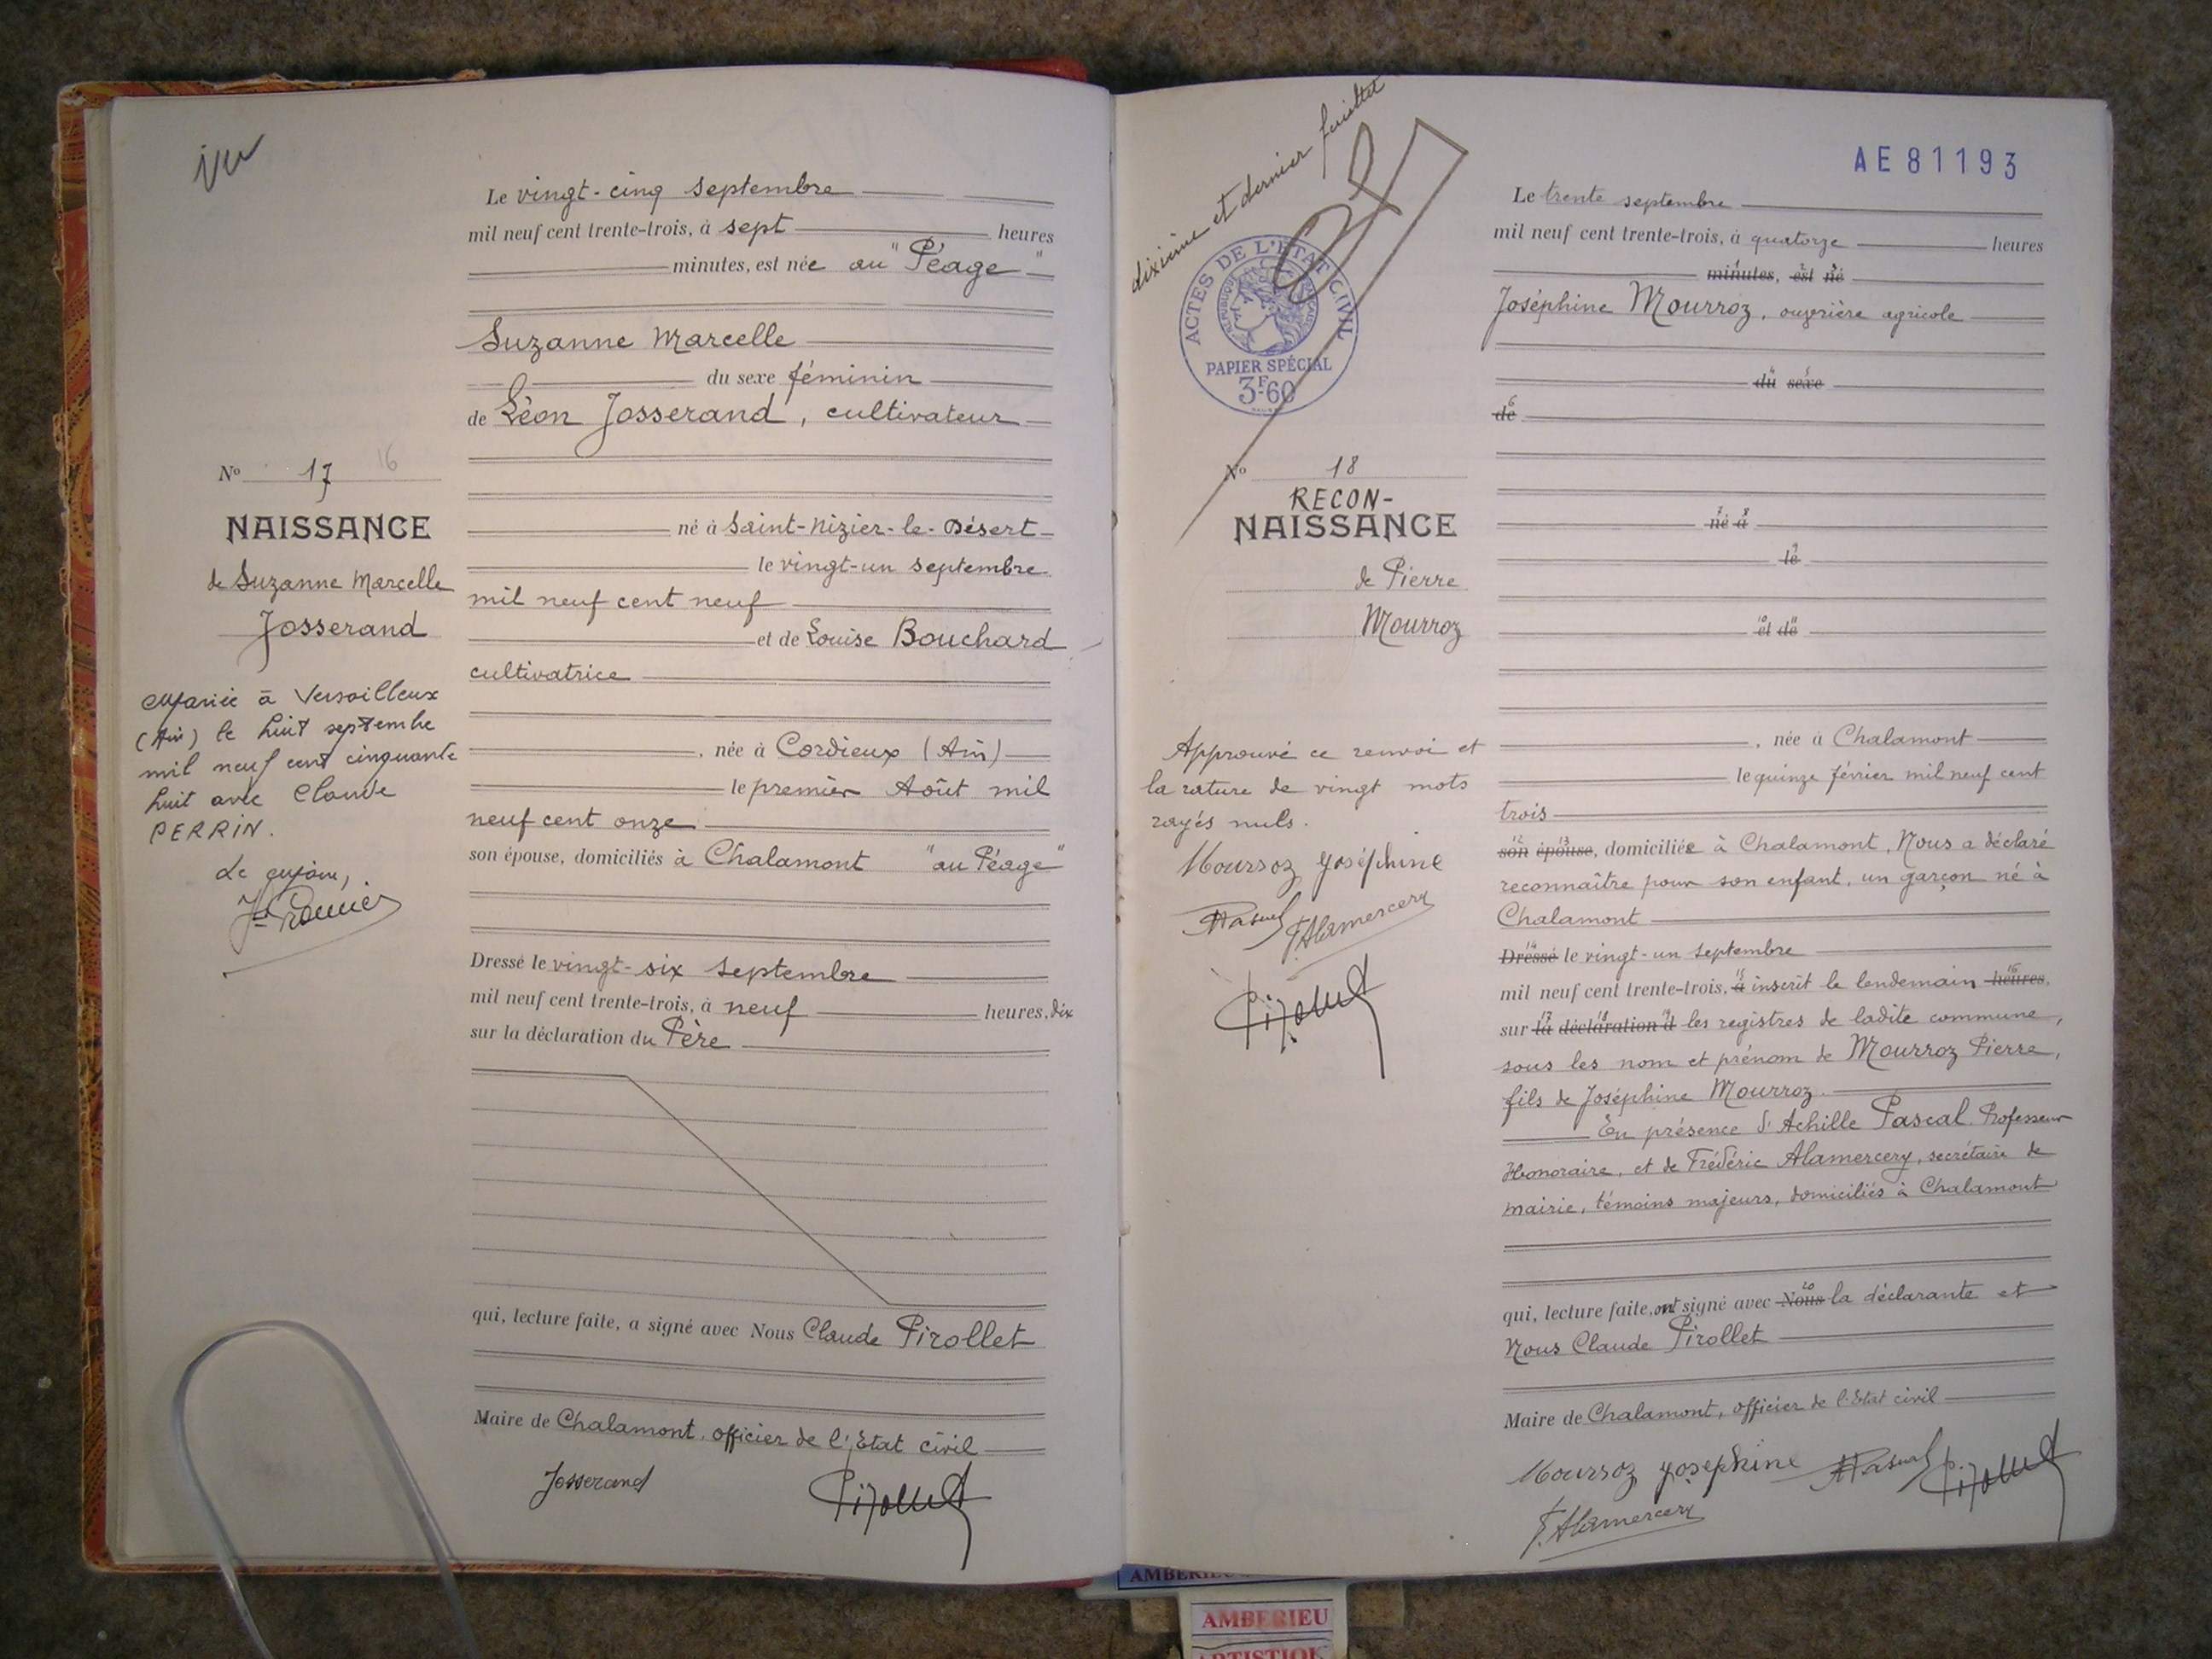 Le vingt-cinq septembre
mil neuf cent trente-trois, à sept heures
minutes, est née au "Péage"
Suzanne Marcelle
du sexe féminin
de Léon Josserand, cultivateur
né à Saint-Nizier-le-Désert
le vingt-un septembre
mil neuf cent neuf
et de Louise Bouchard
cultivatrice
, née à Cordieux (Ain)
le premier Août mil
neuf cent onze
son épouse, domiciliés à Chalamont "au Péage"
Dressé le vingt-six septembre
mil neuf cent trente-trois, à neuf heures, dix
sur la déclaration du Père
qui, lecture faite, a signé avec Nous Claude Pirollet
Maire de Chalamont, officier de l'Etat civil
Josserand
No 17 16
NAISSANCE
de Suzanne Marcelle
Josserand
Mariée à Versailleux
(Ain) le huit septembre
mil neuf cent cinquante
huit avec Claude
PERRIN.
dixième et dernier feuillet
ACTES DE L'ETAT CIVIL
REPUBLIQUE FRANÇAISE
PAPIER SPÉCIAL
3F.60
No 18
RECON-
NAISSANCE
de Pierre
Mourroz
Approuvé ce renvoi et
la rature de vingt mots
rayés nuls.
Mourroz Joséphine
Pascal
F. Alamercery
AE81193
Le trente septembre
mil neuf cent trente-trois, à quatorze heures
minutes, est né
Joséphine Mourroz, ouvrière agricole
du sexe
de
né à
le
et de
, née à Chalamont
le quinze février mil neuf cent
trois
son épouse, domiciliée à Chalamont, Nous a déclaré
reconnaître pour son enfant, un garçon né à
Chalamont
Dressé le vingt-un septembre
mil neuf cent trente-trois, à inscrit le lendemain heures,
sur la déclaration d les registres de ladite commune,
sous les nom et prénom de Mourroz Pierre,
fils de Joséphine Mourroz.
En présence d'Achille Pascal. Professeur
Honoraire, et de Frédéric Alamercery, secrétaire de
mairie, témoins majeurs, domiciliés à Chalamont
qui, lecture faite, ont signé avec Nous la déclarante et
Nous Claude Pirollet
Maire de Chalamont, officier de l'Etat civil
Mourroz Josephine Pascal
F. Alamercery
AMBERIEU